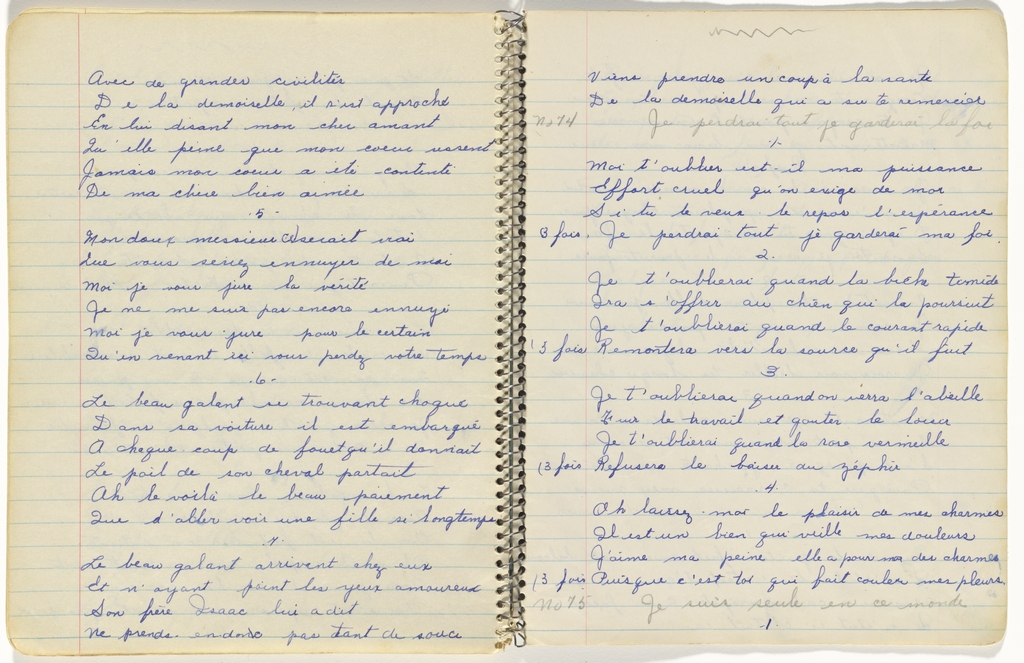 Avec de grandes civilités
De la demoiselle, il s'est approché
En lui disant mon cher amant
Qu'elle peine que mon coeur ressent
Jamais mon coeur a été contenté
De ma chère bien aimée
.5.
Mon doux messieur serait vrai
Que vous seriez ennuyer de moi
Moi je vous jure la vérité
Je ne me suis pas encore ennuyé
Moi je vous jure pour le certain
Qu'en venant ici vous perdez votre temps
.6.
Le beau galant se trouvant choqué
Dans sa voiture il est embarqué
A cheque coup de fouet qu'il donnait
Le poil de son cheval partait
Ah le voilà le beau paiement
Que d'aller voir une fille si longtemps
.7.
Le beau galant arrivent chez eux
Et n'ayant point les yeux amoureux
Son frère Isaac lui a dit
Ne prends donc pas tant de souci
Viens prendre un coup à la santé
De la demoiselle qui a su te remercier
No 74 Je perdrai tout je garderai la foi
.1.
Moi t'oublier est-il ma puissance
Effort cruel qu'on exige de moi
Si tu le veux le repos l'espérance
(3 fois. Je perdrai tout je garderai ma foi.
2.
Je t'oublierai quand la biche timide
Ira s'offrir au chien qui la poursuit
Je t'oublierai quand le courant rapide
(3 fois Remontera vers la source qu'il fuit
3.
Je t'oublierai quand on verra l'abeille
Fuir le travail et gouter le loisir
Je t'oublierai quand la rose vermeille
(3 fois Refusera le baiser du zéphir
.4.
Oh laissez-moi le plaisir de mes charmes
Il est un bien qui veille mes douleurs
J'aime ma peine elle a pour moi des charmes
(3 fois Puisque c'est toi qui fait couler mes pleurs.
No 75 Je suis seule en ce monde
.1.